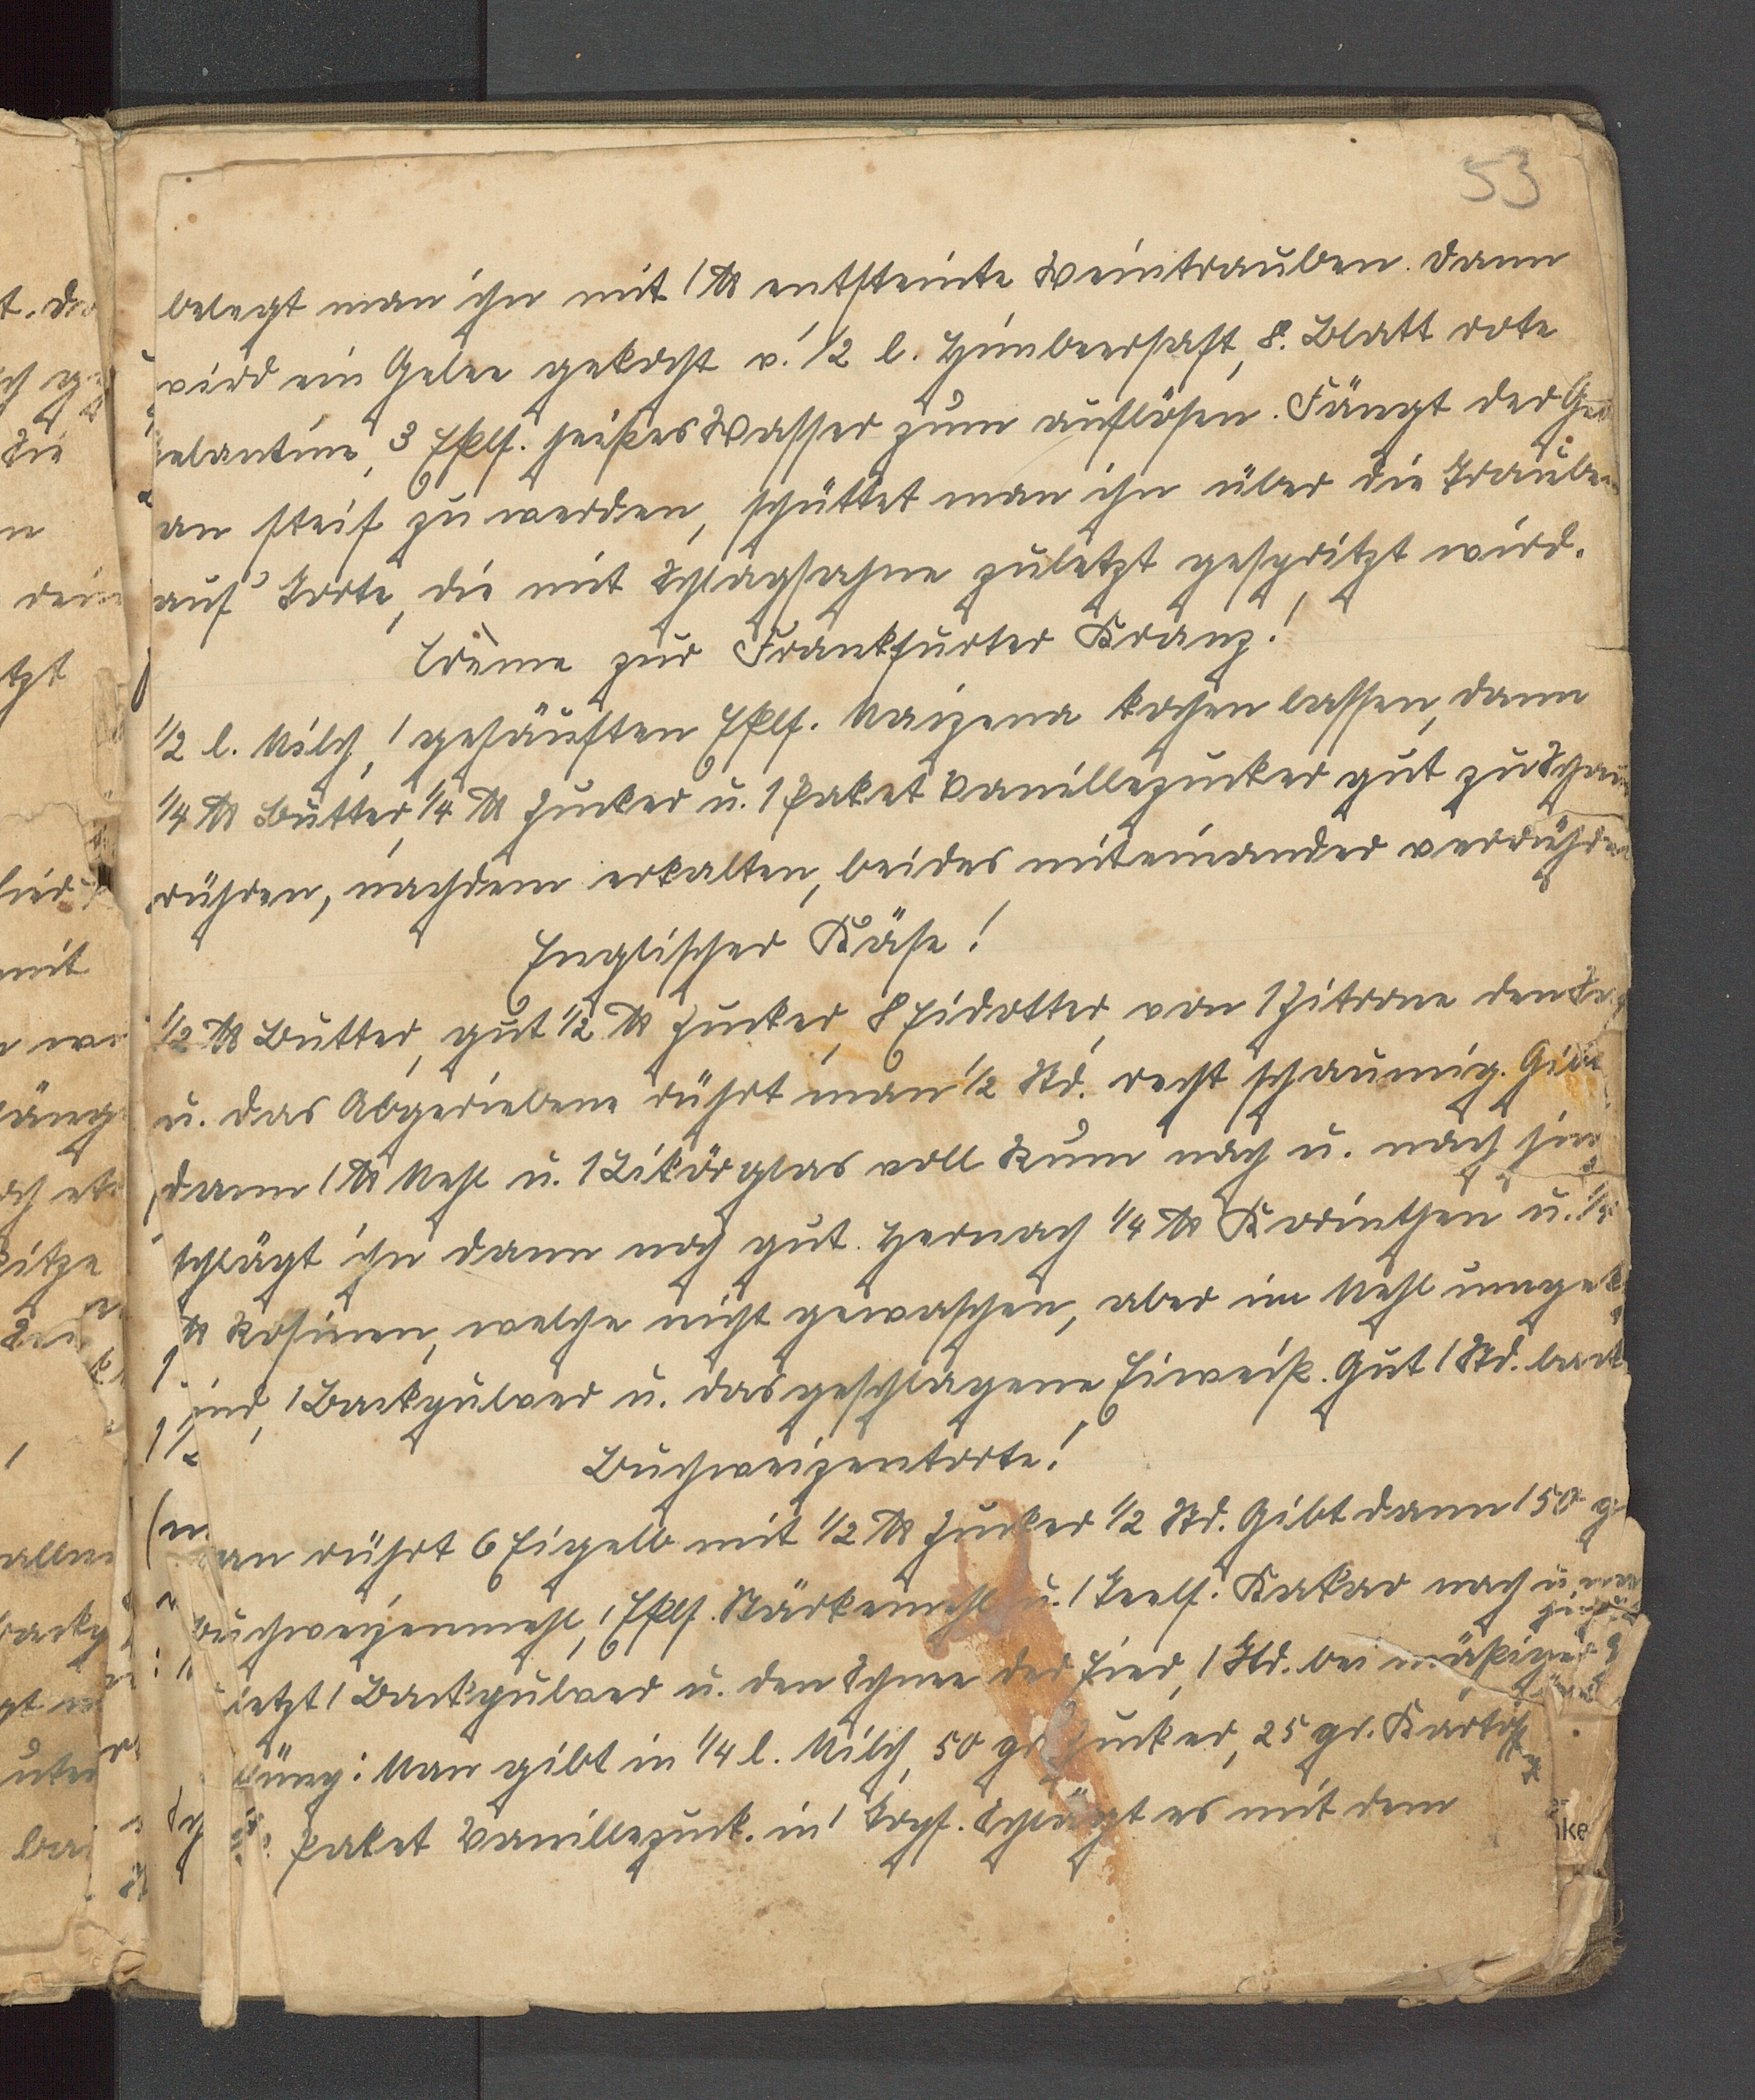 53
belegt man ihn mit 1 ℔ entsteinte Weintrauben. Dann
wird ein Gelee gekocht v. 1/2 l. Himbeersaft, 8. Blatt rote
elantine, 3 Eßlf. heißes Wasser zum auflösen. Fängt der Gel
an steif zu werden, schüttet man ihn über die Trauben
auf Torte, die mit Schlagsahne zuletzt gespritzt wird.
Crème zur Frankfurter Kranz!
1/2 l. Milch, 1 gehäuften Eßlf. Maizena kochen lassen, dann
1/4 ℔ Butter, 1/4 ℔ Zucker u. 1 Paket Vanillezucker gut zu Schaum
rühren, nachdem erkalten, beides miteinander verrühren
Englischer Käse!
1/2 ℔ Butter, gut 1/2 ℔ Zucker, 8 Eidotter, von 1 Zitrone den
u. das Abgeriebene rührt man 1/2 Std. recht schaumig. Gibt
dann 1 ℔ Mehl u. 1 Likörglas voll Rum nach u. nach hin
schlägt ihn dann noch gut. Hernach 1/4 ℔ Korinthen u. 1/4
℔ Rosinen, welche nicht gewaschen, aber im Mehl umge
ind, 1 Backpulver u. das geschlagene Eiweiß. Gut 1 Std. back
Buchweizentorte!
an rührt 6 Eigelb mit 1/2 ℔ Zucker 1/2 Std. Gibt dann 150 g
Buchweizenmehl, 1 Eßlf. Stärkemehl u. 1 Teelf. Kakao nach u.
letzt 1 Backpulver u. den Schnee der Eier, 1 Std. bei mäßiger
üng: Man gibt in 1/4 l. Milch, 50 gr. Zucker, 25 gr. Kartoff
Paket Vanillezuck. in 1 Topf. Schlägt es mit dem